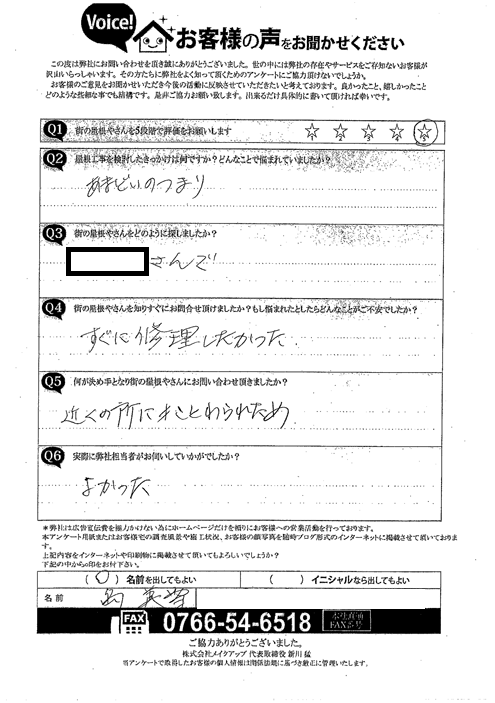 Voice!
お客様の声をお聞かせください
この度は弊社にお問い合わせを頂き誠にありがとうございました。世の中には弊社の存在やサービスをご存知ないお客様が
沢山いらっしゃいます。その方たちに弊社をよく知って頂くためのアンケートにご協力頂けないでしょうか。
お客様のご意見をお聞かせいただき今後の活動に反映させていただきたいと考えております。良かったこと、嬉しかったこと
どのような些細な事でも結構です。是非ご協力お願い致します。出来るだけ具体的に書いて頂ければ幸いです。
Q1 街の屋根やさんを5段階で評価をお願いします
1 2 3 4 5
Q2 屋根工事を検討したきっかけは何ですか?どんなことで悩まれていましたか?
あまどいのつまり
Q3 街の屋根やさんをどのように探しましたか?
さんで
Q4 街の屋根やさんを知りすぐにお問合せ頂けましたか?もし悩まれたとしたらどんなことがご不安でしたか?
すぐに修理したかった
Q5 何が決め手となり街の屋根やさんにお問い合わせ頂きましたか?
近くの所にことわられため
Q6 実際に弊社担当者がお伺いしていかがでしたか?
よかった
*弊社は広告宣伝費を極力かけない為にホームページだけを頼りにお客様への営業活動を行っております。
本アンケート用紙またはお客様宅の調査風景や施工状況、お客様の顔写真を随時ブログ形式のインターネットに掲載させて頂いておりま
す。
上記内容をインターネットや印刷物に掲載させて頂いてもよろしいでしょうか?
下記の中から○印をお付下さい。
(○) 名前を出してもよい ( ) イニシャルなら出してもよい
名前
FAX 0766-54-6518 本社直通 FAX番号
ご協力ありがとうございました。
株式会社メイクアップ 代表取締役 新川 猛
当アンケートで取得したお客様の個人情報は関係法規に基づき厳正に管理いたします。